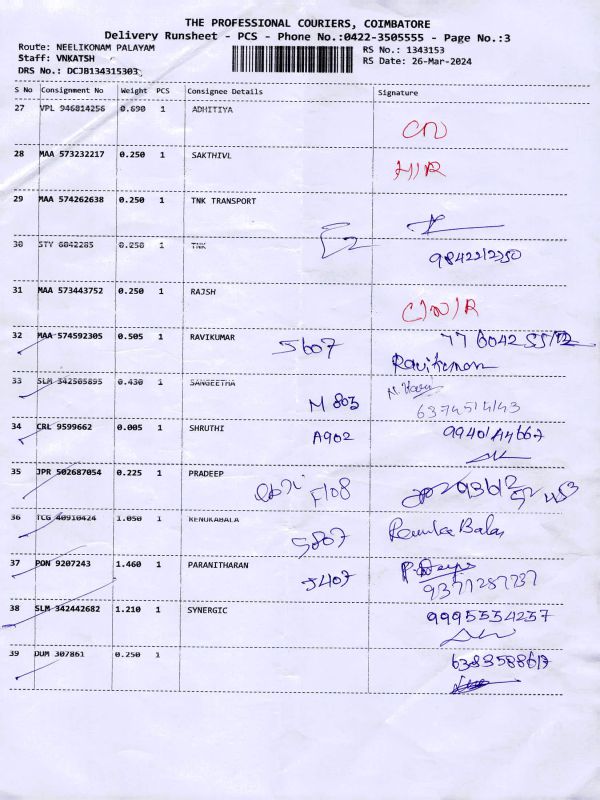 THE PROFESSIONAL COURIERS, COIMBATORE
Delivery Runsheet - PCS - Phone No.:0422-3505555 - Page No.:3
Route: NEELIKONAM PALAYAM RS No.: 1343153
Staff: VNKATSH RS Date: 26-Mar-2024
DRS No.: DCJB134315303
S No Consignment No Weight PCS Consignee Details Signature
27 VPL 946814256 0.690 1 ADHITIYA
28 MAA 573232217 0.250 1 SAKTHIVL
29 MAA 574262638 0.250 1 TNK TRANSPORT
30 STY 6842285 0.250 1 TNK
9842212250
31 MAA 573443752 0.250 1 RAJSH
32 MAA 574592305 0.505 1 RAVIKUMAR J607
Ravikumar
33 SLM 342505895 0.430 1 SANGEETHA
M 803
34 CRL 9599662 0.005 1 SHRUTHI A902
35 JPR 502687054 0.225 1 PRADEEP F108
36 TCG 40910424 1.050 1 RENUKABALA Renuka Bala
37 PON 9207243 1.460 1 PARANITHARAN J407
38 SLM 342442682 1.210 1 SYNERGIC 9995554257
39 DUM 307861 0.250 1